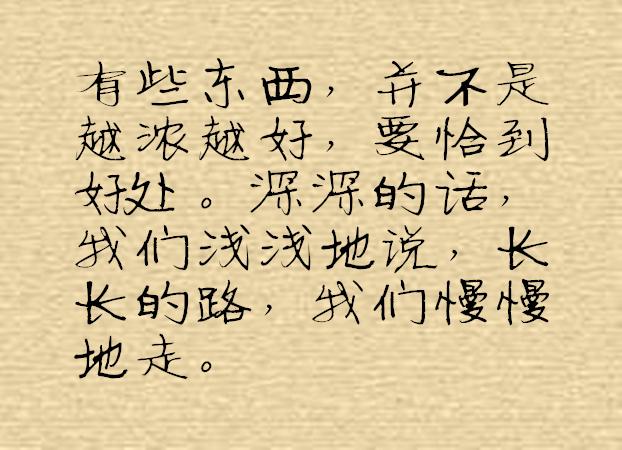 有些东西，并不是
越浓越好，要恰到
好处。深深的话，
我们浅浅地说，长
长的路，我们慢慢
地走。